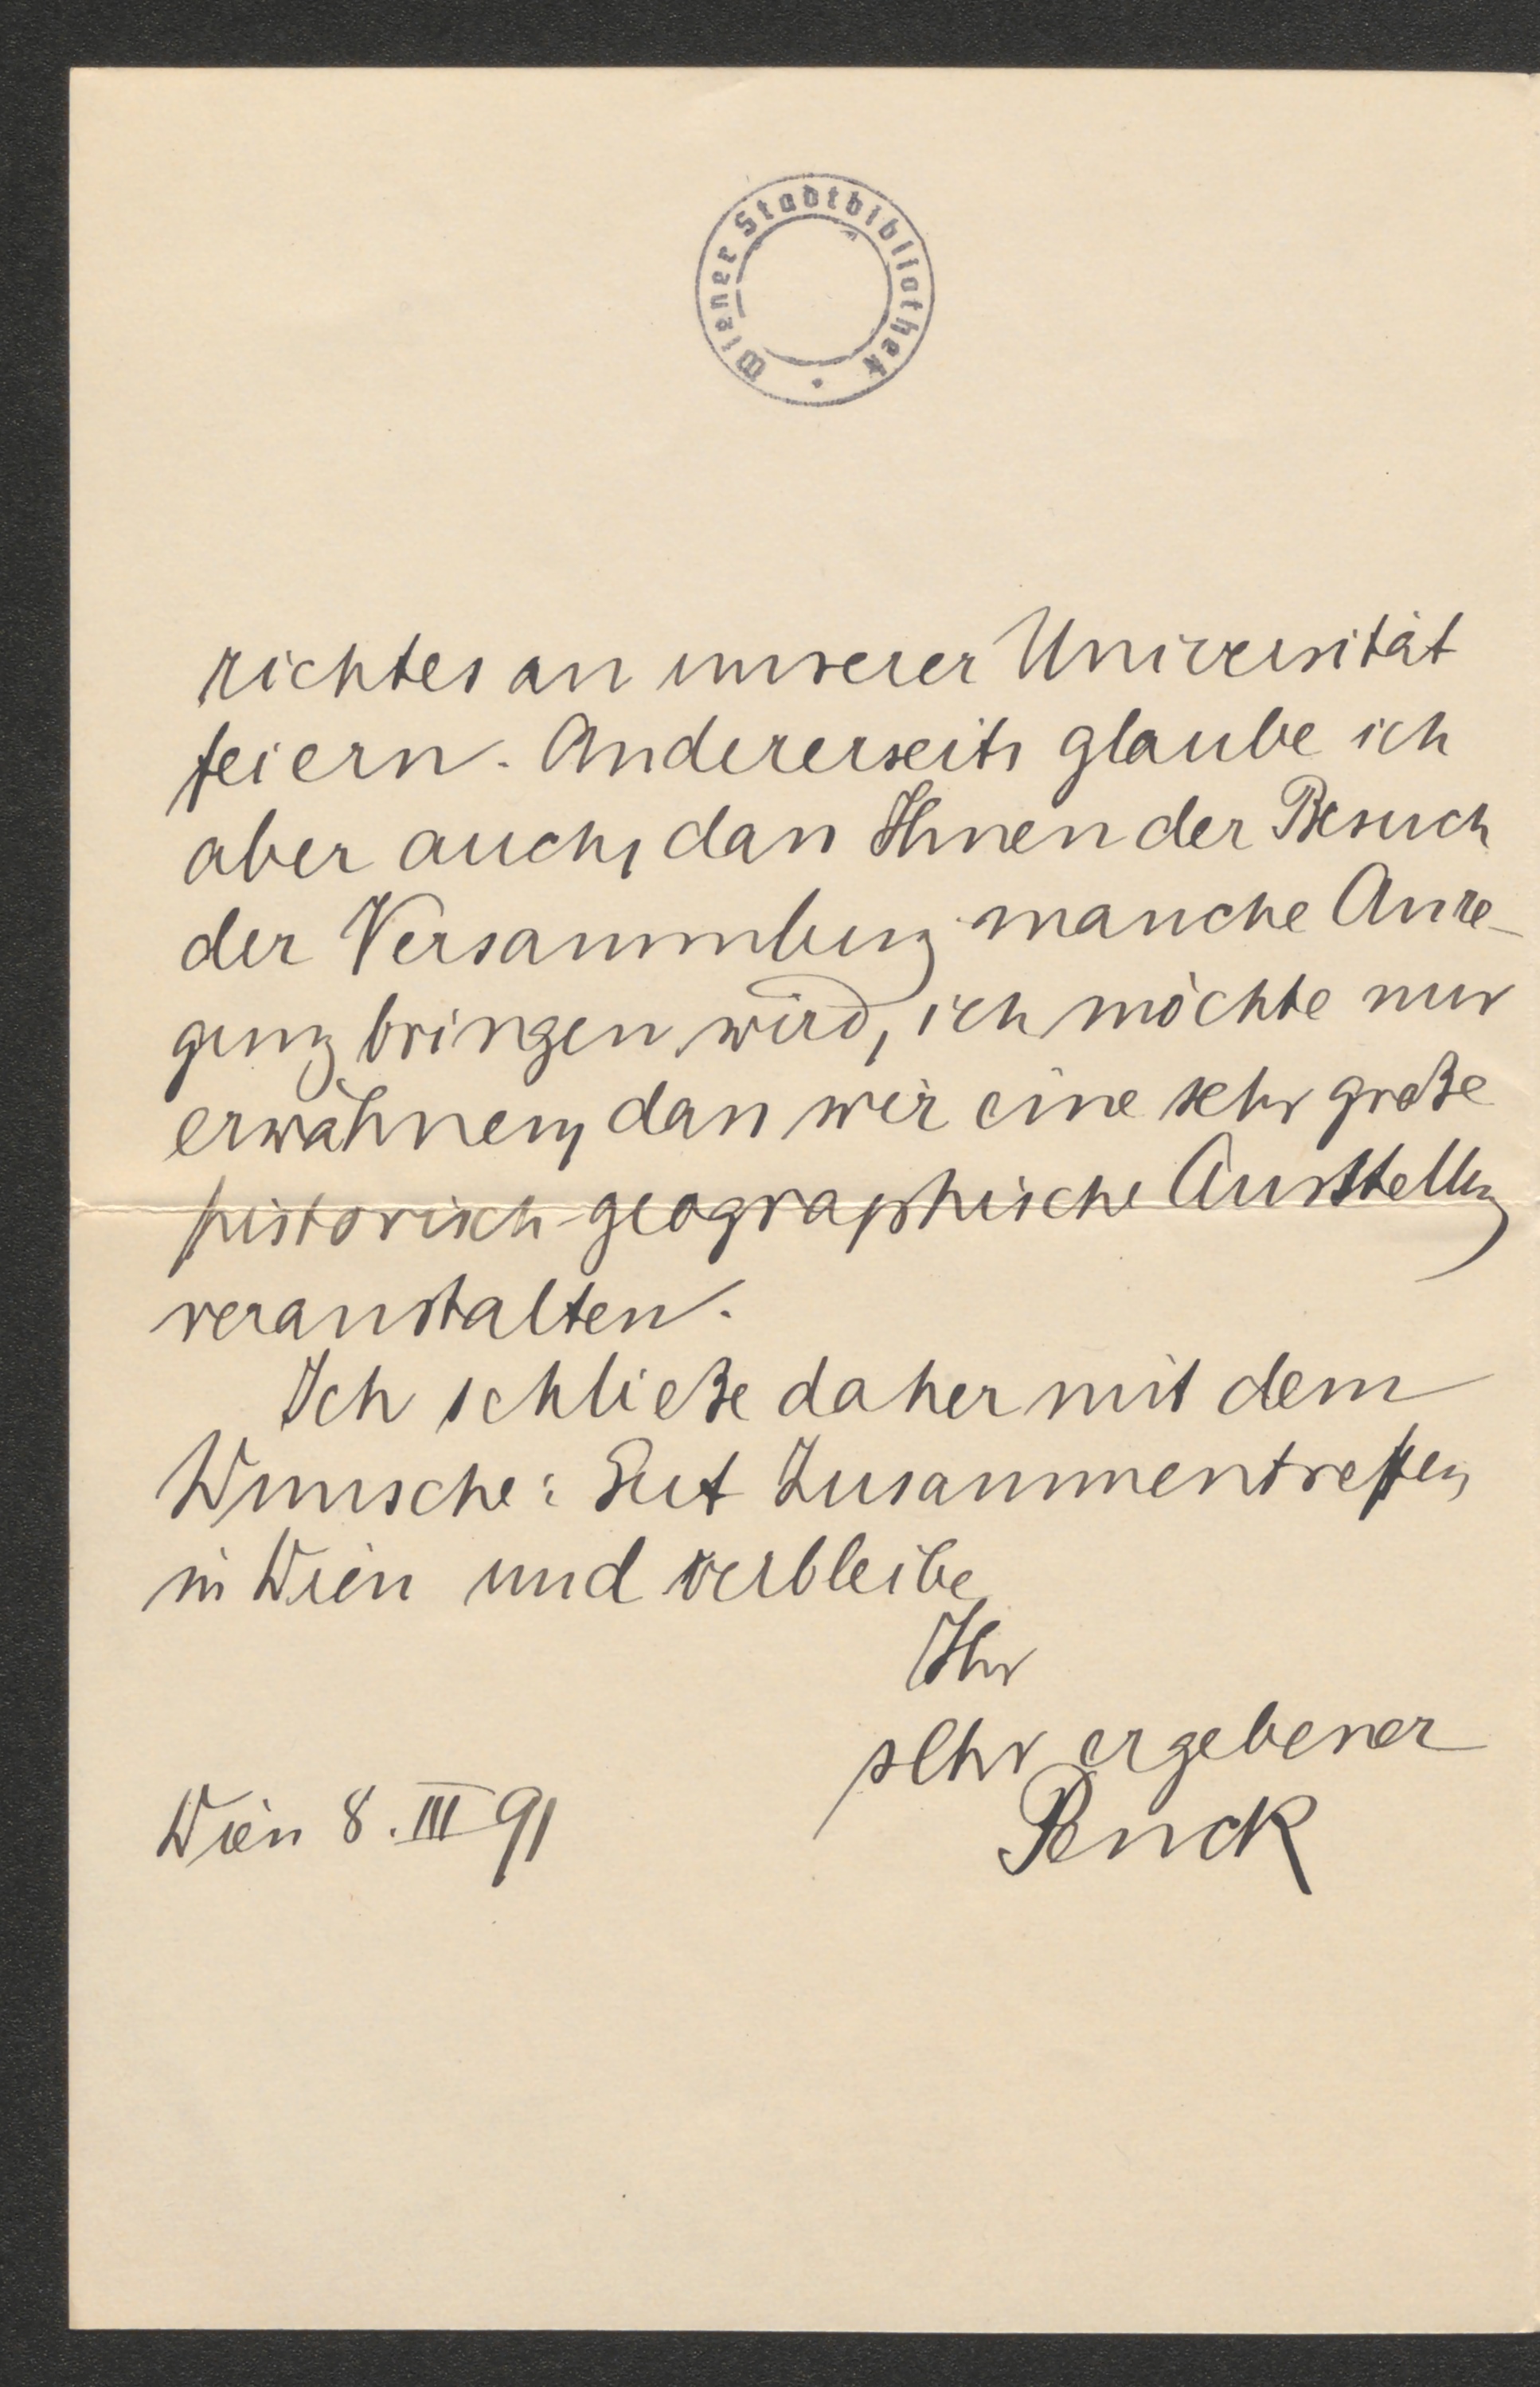 Wiener Stadtbibliothek
richtes an unserer Universität
feiern. Andererseits glaube ich
aber auch, dass Ihnen der Besuch
der Versammlung manche Anre-
gung bringen wird, ich möchte nur
erwähnen, dass wir eine sehr große
historisch-geographische Ausstellung
veranstalten.
Ich schließe daher mit dem
Wunsche: Gut Zusammentreffen
in Wien und verbleibe
Ihr
sehr ergebener
Penck
Wien 8. III 91